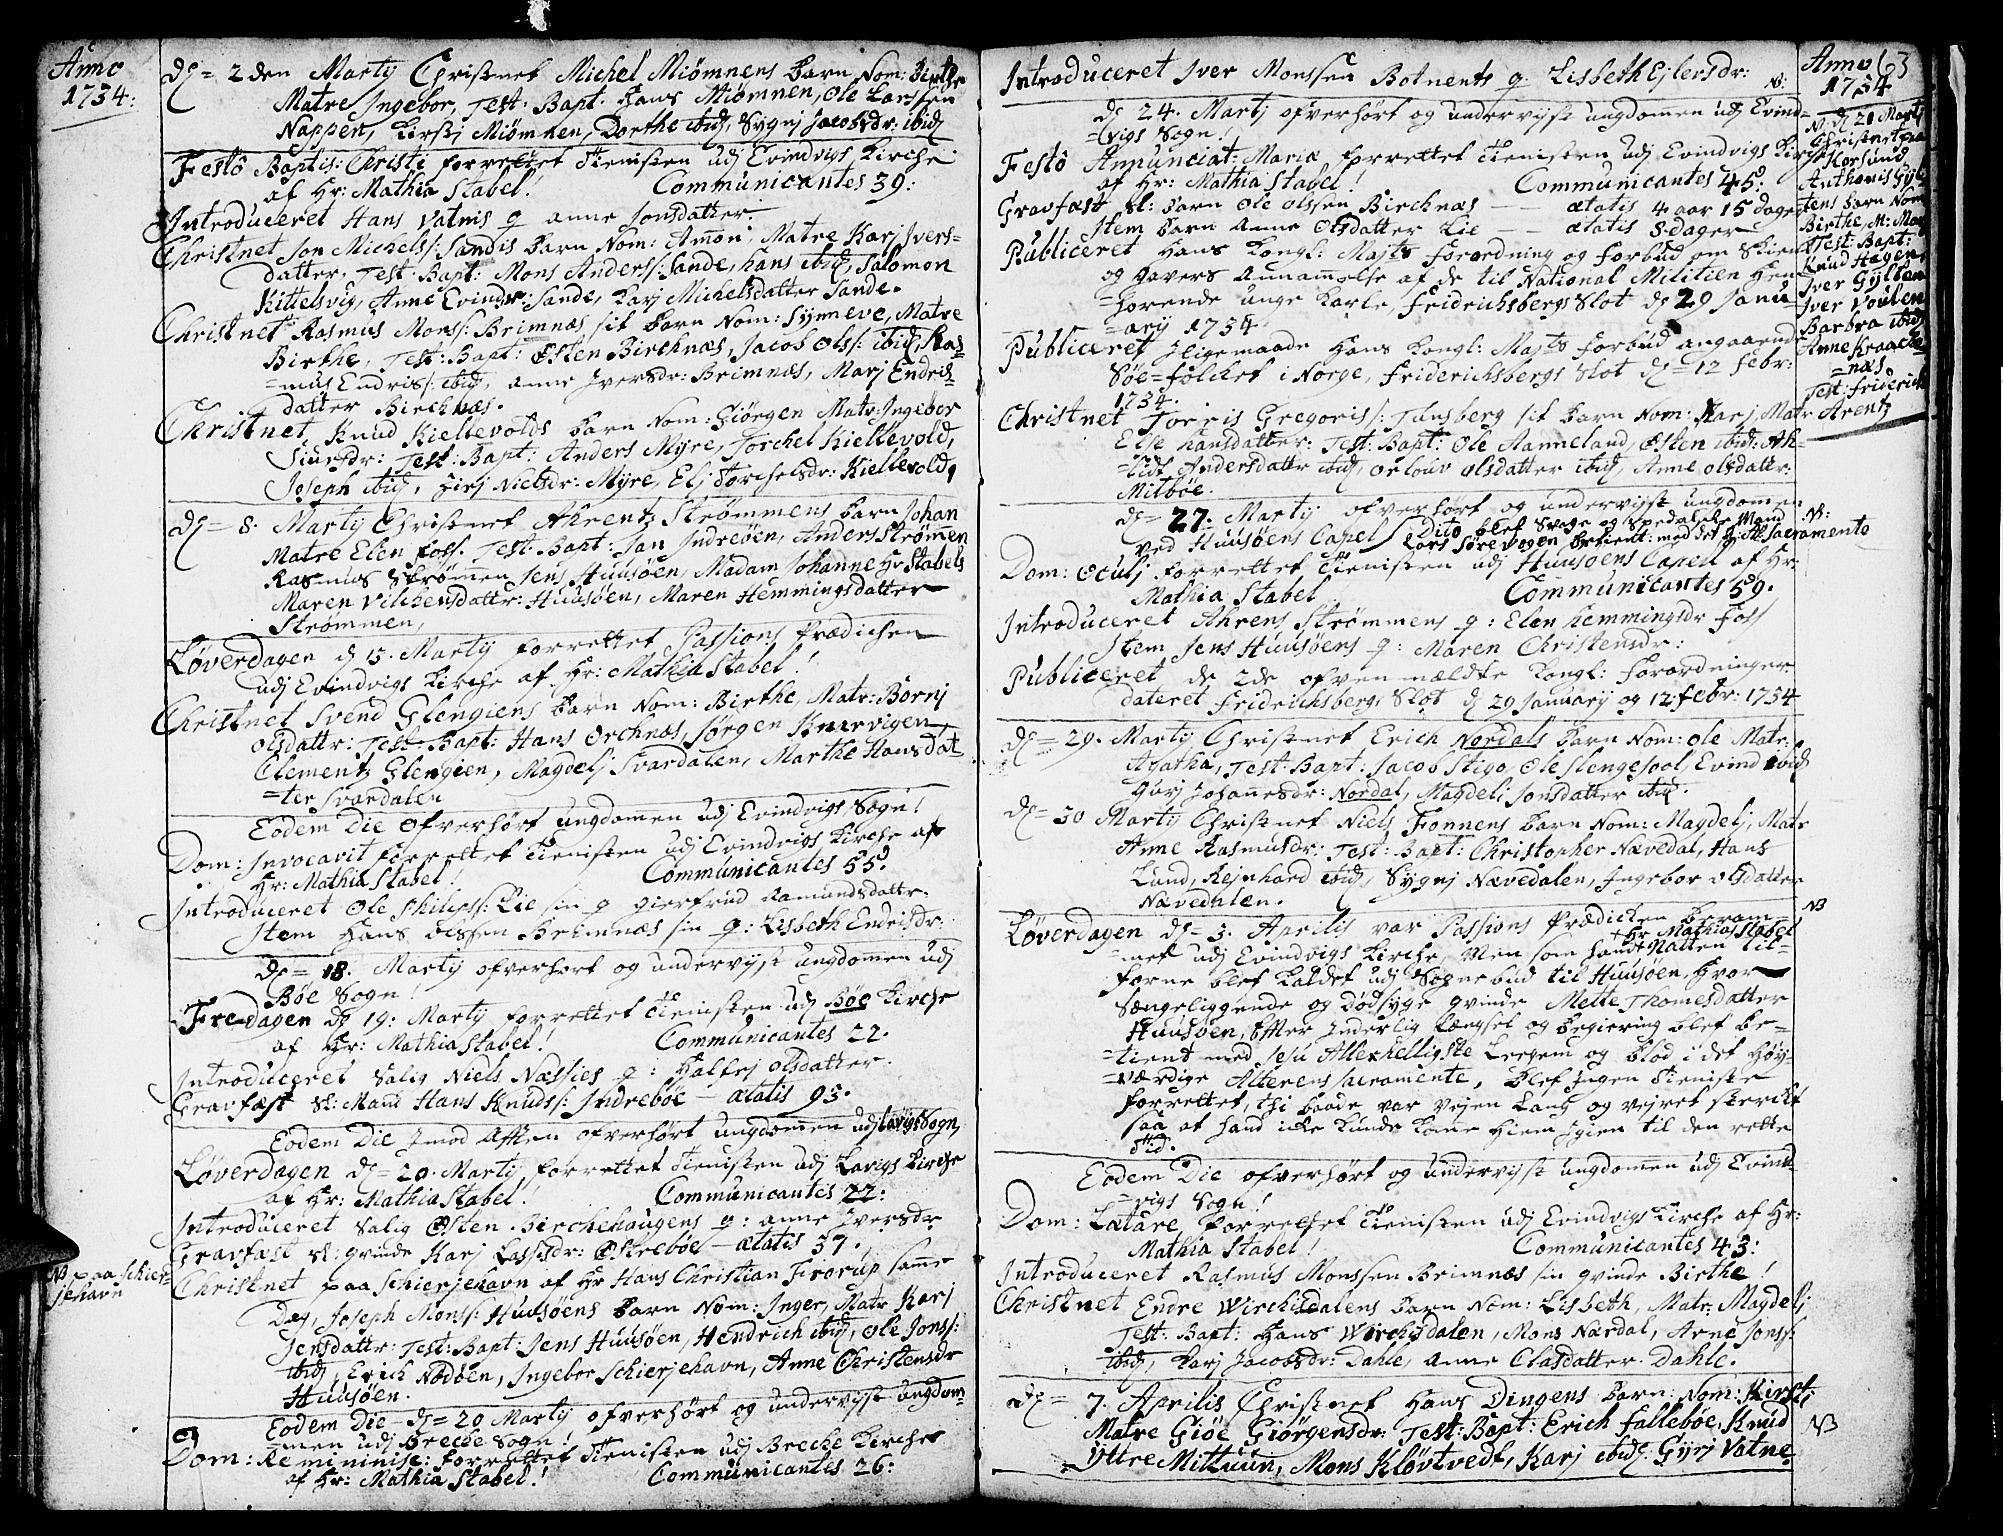 Anno
1734:
d. 2den Martij Christnet Michel Miømnens barn Nom: Birthe
Matre Ingebor, Test: Bapt: Hans Miømnen, Ole Larssen
Nappen, Kirstj Miømnen, Dorthe ibid, Sygnj Jacobsdr: ibid
Festô Baptis: Christi forrettet Tienisten udj Evindvigs Kirche
af Hr: Mathia Stabel! Communicantes 39:
Introduceret Hans Vatnis q anne Jonsdatter.
Christnet Jon Michels/: Sandis barn Nom: Amon, Matre Karj Ivers-
datter. Test: Bapt: Mons Anders/: Sande, hans ibid, Salomon
Kittelsvig, Anne Evindsr: Sande, Karj Michelsdatter Sande.
Christnet Rasmus Mons/: Brimnæs sit barn Nom: Synneve, Matre
Birthe, Test: Bapt: Østen Birchnæs, Jacob Ols/: ibid, Ras-
=mus Endris/: ibid, anne Iversdr: Brimnæs, Marj Endris-
datter Birchnæs.
Christnet Knud Kiellevolds barn Nom: Giørgen Matr: Ingebor
Siursdr: Test: Bapt: Anders Myre, Torchel Kiellevold,
Joseph ibid, Sirj Nielsdr: Myre, Elj Torchelsdr: Kiellevold,
d. 8. Martij Christnet Ahrentz Strømmens barn Johan
Matre Elen Foss. Test: Bapt: Jan Indreøen, Anders Strømen
Rasmus Strømen Jens Huusøen, Madam Johanne Hr Stabels
Maren Vilchensdattr: Huusøen, Maren Hemmingsdatter
Strømmen,
Løverdagen d. 15. Martij forrettet Passions Prædichen
udj Evindvigs Kirche af Hr: Mathia Stabel!
Christnet Svend Glengiens barn Nom: Birthe, Matr: Bornj
olsdattr: Test: Bapt: Hans Orchnæs, Jørgen Knarvigen,
Clementz Glengien, Magdelj Svardalen, Marthe Hansdat-
=ter Svardalen
Eodem Die ofverhørt ungdomen udj Evindvigs Sogn!
Dom: Invocavit forrettet Tienisten udj Evindvigs Kirche af
Hr: Mathia Stabel! Communicantes 55.
Introduceret Ole Philips/: Lie sin q gierfrud Ramundsdattr.
Item Hans olssen Brimnæs sin q: Lisbeth Endrisdr.
d. 18. Martij ofverhørt og undervijst ungdomen udj
Bøe Sogn!
Fredagen d. 19: Martij forrettet Tienisten udj Bøe Kirche
af Hr: Mathia Stabel! Communicantes 22.
Introduceret Salig Niels Næssies q: Halfrj olsdatter.
Gravfæst Sl: Mand Hans Knuds/: Indrebøe — ætatis 93.
Eodem Die Imod Aften ofverhørt ungdomen udj Lavigs Sogn,
Løverdagen d. 20. Martij forrettet Tienisten udj Lavigs Kirche
af Hr: Mathia Stabel! Communicantes 22:
Introduceret Salig Østen Birchehaugens q: anne Iversdr
Gravfæst Sl: qvinde Karj Lassisdr: Østrebøe — ætatis 37.
NB paa Schier-
jehavn
Christnet paa Schierjehavn af Hr Hans Christian Frorup samme
Dag, Joseph Mons/: Huusøens barn Nom: Inger, Matr Karj
Jensdattr: Test: Bapt: Jens Huusøen, Hendrich ibid, Ole Jons/:
ibid, Erich Nodøen, Ingebor Schierjehavn, Anne Christensdr
Huusøen.
Eodem Die d. 20 Martij ofverhørt og undervijst ungdom-
=men udj Breche Sogn!
Dom: Reminisc: forrettet Tienisten udj Breche Kirche
af Hr: Mathia Stabel! Communicantes 26:
Introduceret Iver Monssen Botnents q. Lisbeth Ejlersdr: N:
d. 24. Martij ofverhørt og undervijst ungdomen udj Evind-
=vigs Sogn!
Festô Annunciat: Mariæ forrettet Tienisten udj Evindvigs Kirche
af Hr: Mathia Stabel! Communicantes 45:
Gravfæst Sl: barn Ole Olssen Birchnæs — ætatis 4 aar 15 dager
Item barn Anne Olsdatter Lie — ætatis 8 dager
Publiceret Hans Kongl: Majts forordning og forbud om Skienk
og Gavers Annammelse af de til National Militien Hen-
=hørende unge Karle, Fridrichsbergs Slot d. 29 Janu-
=arij 1734.
Publiceret Iligemaade Hans Kongl: Majts Forbud angaaende
Søe-folcket i Norge, Friderichsbergs Slot d. 12 Febr:
1734.
Christnet Torris Gregoris/: Tunsberg sit barn Nom: Karj, Matr
Else hansdatter: Test: Bapt: Ole Hanneland, Østen ibid: Ah-
=lidt Andersdattr ibid, Orlouv olsdatter ibid, Anne olsdattr:
Mitbøe.
d. 27. Martij ofverhørt og undervijst ungdomen
ved Huusøens Capel / Dito blef Svage og Spedalske Mand
Lars Sørevogen betient: med det h: Alt: Sacramento
Dom: Oculj forrettet Tienisten udj Huusøens Capell af Hr:
Mathia Stabel Communicantes 59.
Introduceret Ahrens Strømmens q: Elen Hemmingsdr Foss
Item Jens Huusøens q: Maren Christensdr:
Publiceret de 2de ofvenmældte Kongl: Forordninger
dateret Fridrichsbergs Slot d. 29 Januarij og 12 febr: 1734
d. 29. Martij Christnet Erich Nordals barn Nom: Ole Matr:
Agatha, Test: Bapt: Jacob Stigo, Ole Slengesool, Evind ibid
Gurj Johannesdr: Nordal, Magdeli Jonsdatter ibid.
d. 30 Martij Christnet Niels Fonnens barn Nom: Magdelj, Matr
Anne Rasmusdr: Test: Bapt: Christopher Nævedal, Hans
Lund, Rejnhard ibid, Sygnj Nævedalen, Ingebor olsdatter
Nævedalen.
Løverdagen d. 3. Aprilis var Passions Prædicken beram-
=met udj Evindvigs Kirche, Men som hand Natten til-
+ Hr Mathia Stabel
forne blef Kaldet udj Sognebud til Huusøen, hvor
Sængeliggende og Dødsyge qvinde Mette Thomesdatter
Huusøen, Efter Inderlig Længsel og Begiering blef be-
=tient med Jesu Allerhelligste Leegem og Blod i det Høy-
=værdige Alterens Sacramente, blef Ingen Tieniste
forrettet, thi baade var Vejen Lang og vejret sterckt
saa at hand icke kunde Kome hiem Igien til den rette
Tid.
Eodem Die ofverhørt og undervijst ungdomen udj Evind-
=vigs Sogn!
Dom: Lætare forrettet Tienisten udj Evindvigs Kirche af Hr:
Mathia Stabel! Communicantes 43:
Introduceret Rasmus Monssen Brimnæs sin qvinde Birthe!
Christnet Endre Wirchisdalens barn Nom: Lisbeth, Matr: Magdelj
Test: Bapt: Hans Wirchsdalen, Mons Nærdal, Arne Jons/:
ibid, Karj Jacobsdr: Dahle, Anne Clasdatter Dahle.
d. 7. Aprilis Christnet Hans Dingens barn: Nom: Kirstj
Matre Giøe Giørgensdr: Test: Bapt: Erich Fallebøe, Knud
Yttre Mittuun, Mons Kløvtvedt, Karj ibid. Gyrj Vatne
Anno 63
1734
N: d. 21 Martij
Christnet paa
Korsund
Anthonis Gyl-
tens barn Nom
Birthe, M: Marj
Test: Bapt:
Knud Hagen,
Iver Gylten
Iver Voulen
Barbra ibid
Anne Kraache-
=næs
Test: Friderich
Arentz
N:
NB
NB